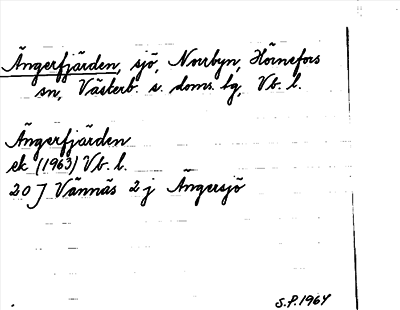 Ängerfjärden, sjö, Norrbyn, Hörnefors
sn, Västerb. s. doms. lg, Vb. l.
Ängerfjärden
ek (1963) Vb. l.
20 J Vännäs 2 j Ängersjö
S.P. 1964